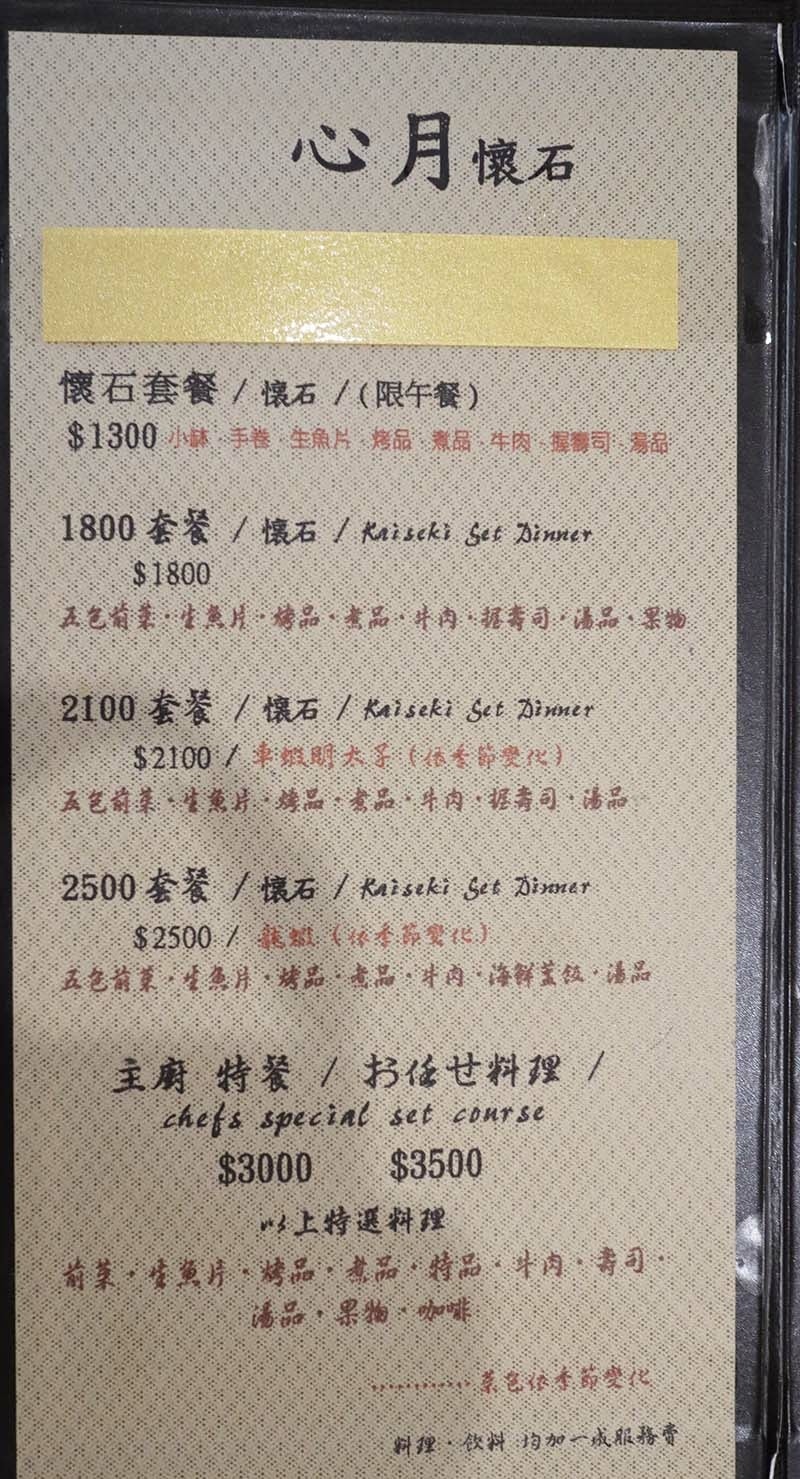 心月懷石
懷石套餐 / 懷石 / (限午餐)
$1300 小缽·手卷·生魚片·烤品·煮品·牛肉·握壽司·湯品
1800 套餐 / 懷石 / Kaiseki Set Dinner
$1800
五色前菜·生魚片·烤品·煮品·牛肉·握壽司·湯品·果物
2100 套餐 / 懷石 / Kaiseki Set Dinner
$2100 / 車蝦明太子(依季節變化)
五色前菜·生魚片·烤品·煮品·牛肉·握壽司·湯品
2500 套餐 / 懷石 / Kaiseki Set Dinner
$2500 / 龍蝦(依季節變化)
五色前菜·生魚片·烤品·煮品·牛肉·海鮮蓋飯·湯品
主廚 特餐 / お任せ料理 /
chefs special set course
$3000 $3500
以上特選料理
前菜·生魚片·烤品·煮品·特品·牛肉·壽司·
湯品·果物·咖啡
............菜色依季節變化
料理·飲料 均加一成服務費